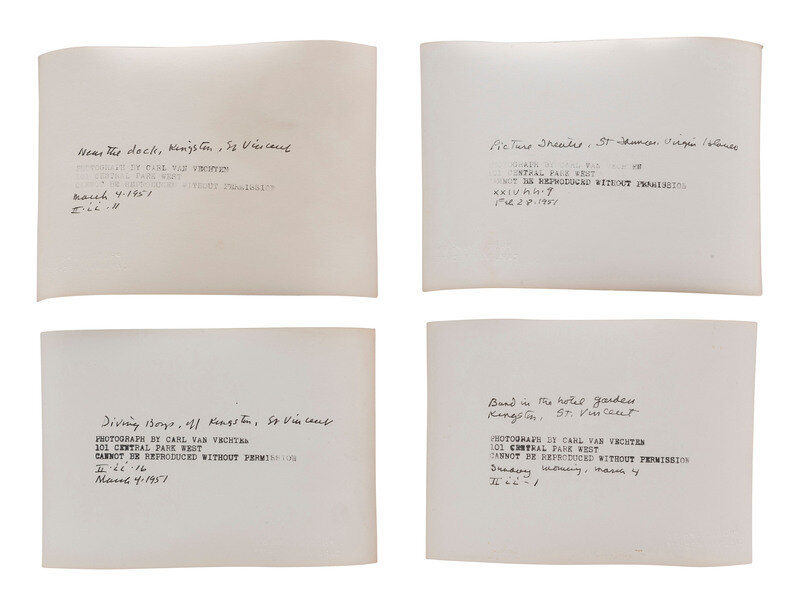 Near the dock, Kingston, St Vincent
PHOTOGRAPH BY CARL VAN VECHTEN
101 CENTRAL PARK WEST
CANNOT BE REPRODUCED WITHOUT PERMISSION
March 4 · 1951
II · ii · 11
Picture Theatre, St Thomas, Virgin Islands
PHOTOGRAPH BY CARL VAN VECHTEN
101 CENTRAL PARK WEST
CANNOT BE REPRODUCED WITHOUT PERMISSION
XXIV hh · 9
Feb 28 · 1951
Diving Boys, off Kingston, St Vincent
PHOTOGRAPH BY CARL VAN VECHTEN
101 CENTRAL PARK WEST
CANNOT BE REPRODUCED WITHOUT PERMISSION
II · ii · 16
March 4 · 1951
Band in the hotel garden
Kingston, St. Vincent
PHOTOGRAPH BY CARL VAN VECHTEN
101 CENTRAL PARK WEST
CANNOT BE REPRODUCED WITHOUT PERMISSION
Sunday morning, March 4
II ii - 1